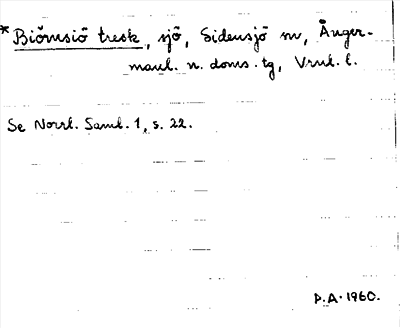 *Biörnsiö tresk, sjö, Sidensjö sn, Ånger-
manl. n. doms. tg, Vrnl. l.
Se Norrl. Saml. 1, s. 22.
P.A. 1960.